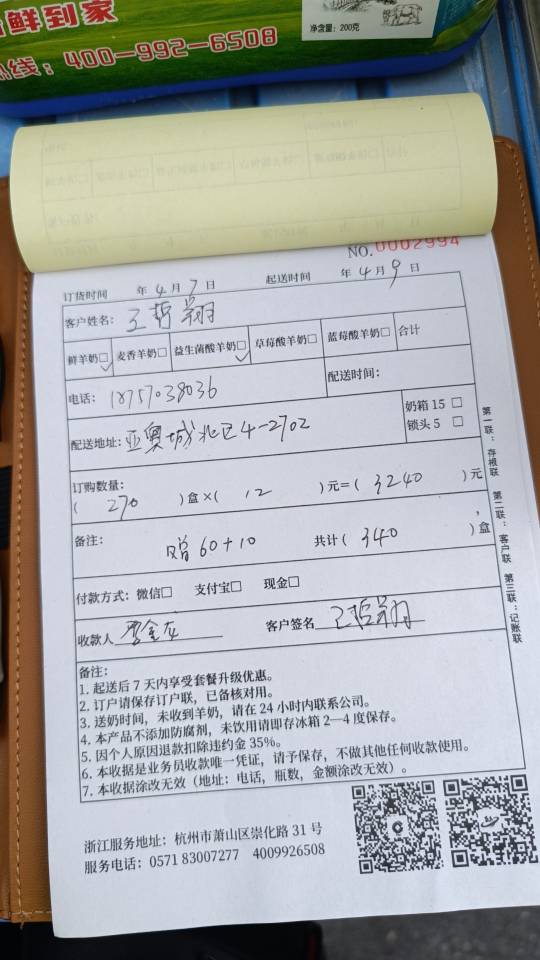 鲜到家
热线：400-992-6508
净含量：200克
NO.0002994
订货时间 年4月7日 起送时间 年4月9日
客户姓名：王哲翔
鲜羊奶☑ 麦香羊奶□ 益生菌酸羊奶☑ 草莓酸羊奶□ 蓝莓酸羊奶□ 合计
电话：18757038036 配送时间：
配送地址：亚奥城北区4-2702 奶箱15 □
锁头5 □
订购数量：
（270）盒×（12）元=（3240）元
备注：赠60+10 共计（340）盒
付款方式：微信□ 支付宝□ 现金□
收款人 客户签名 王哲翔
第一联：存根联 第二联：客户联 第三联：记账联
备注：
1. 起送后7天内享受套餐升级优惠。
2. 订户请保存订户联，已备核对用。
3. 送奶时间，未收到羊奶，请在24小时内联系公司。
4. 本产品不添加防腐剂，未饮用请即存冰箱2—4度保存。
5. 因个人原因退款扣除违约金35%。
6. 本收据是业务员收款唯一凭证，请予保存，不做其他任何收款使用。
7. 本收据涂改无效（地址：电话，瓶数，金额涂改无效）。
浙江服务地址：杭州市萧山区崇化路31号
服务电话：0571 83007277 4009926508